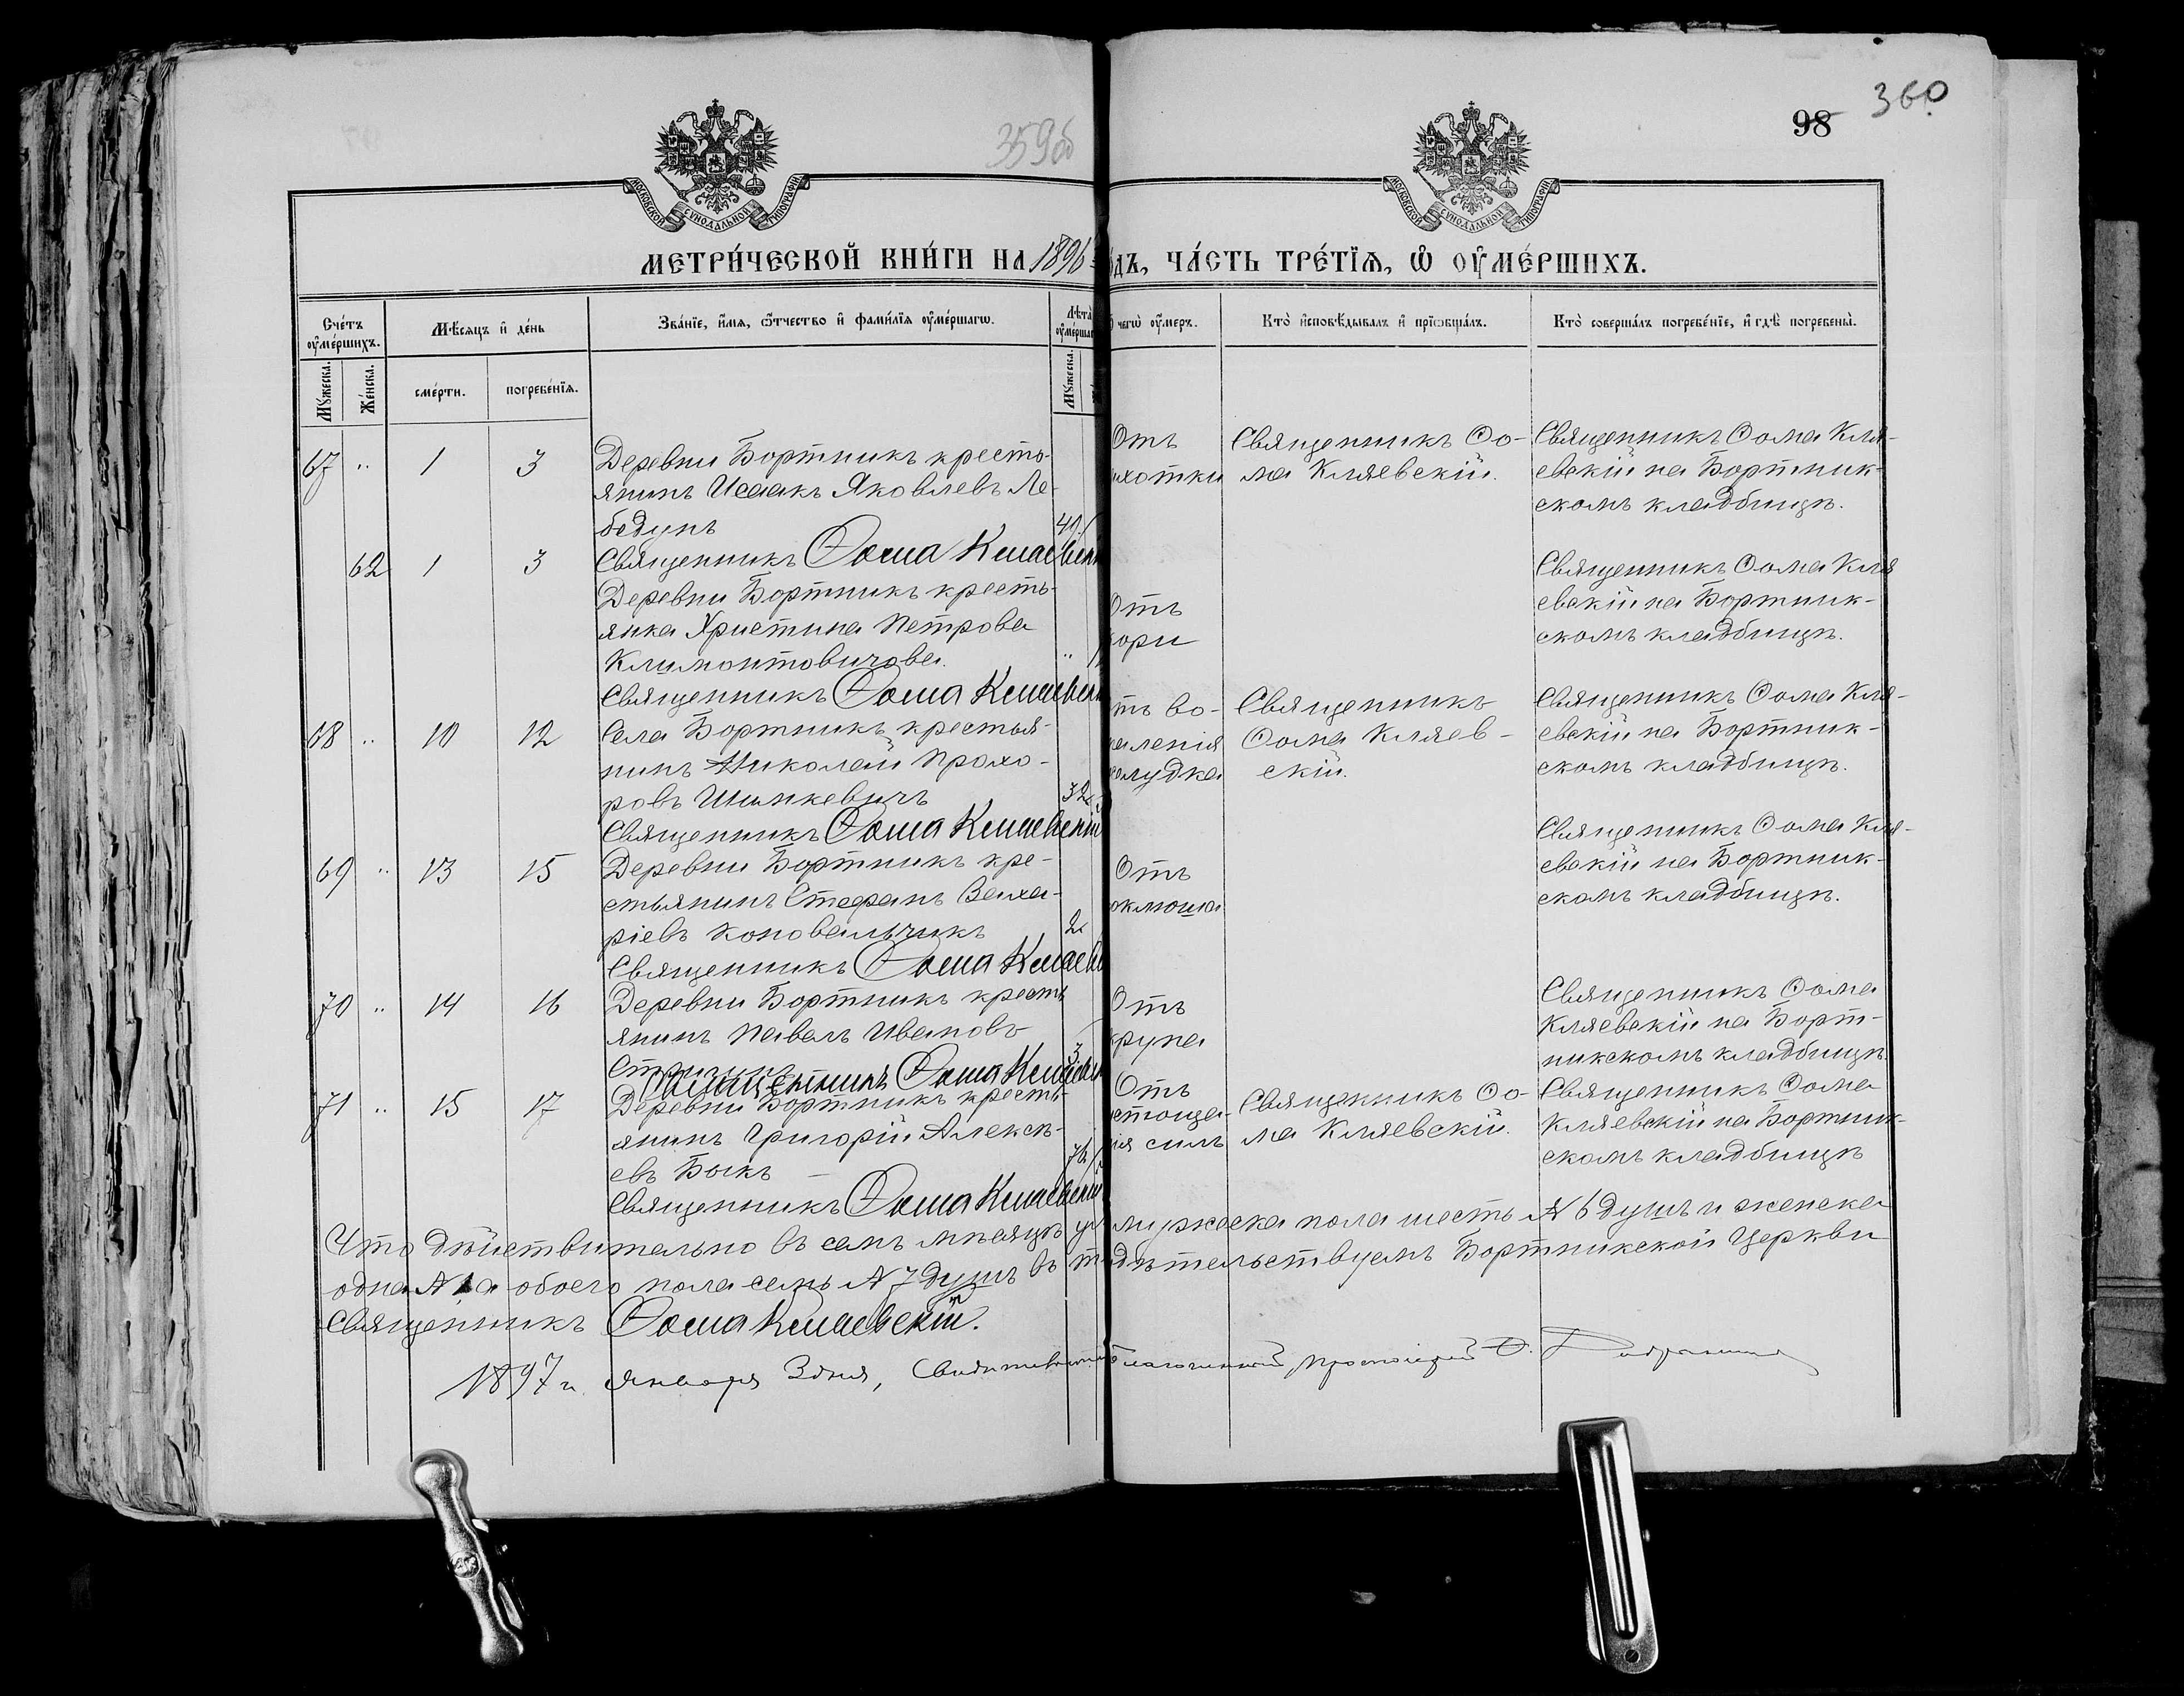 359об
98
360
МОСКОВСКОЙ СѴНОДАЛЬНОЙ ТИПОГРАФІИ
МОСКОВСКОЙ СѴНОДАЛЬНОЙ ТИПОГРАФІИ
МЕТРИ́ЧЕСКОЙ КНИ́ГИ НА 1896
ДЪ, ЧА́СТЬ ТРЕ́ТЇѦ, Ѡ҆ ОУ҆МЕ́РШИХЪ.
Сче́тъ оу҆ме́ршихъ.
Мꙋжеска.
Же́нска.
Мѣ́сѧцъ и҆ де́нь
сме́рти.
погребе́нїѧ.
Зва́нїе, и҆́мѧ, ѻ҆́тчество и҆ фами́лїѧ оу҆ме́ршагѡ.
Лѣта̀
Мꙋжеска.
чегѡ̀ оу҆́меръ.
Кто̀ и҆сповѣ́дывалъ и҆ прїѡбща́лъ.
Кто̀ соверша́лъ погребе́нїе, и҆ гдѣ̀ погребены̀.
67 " 1 3 Деревни Бортникъ кресть-
янинъ Исаакъ Яковлевъ Ле-
бедунъ 49
Священникъ Ѳома Кляевскі
Отъ
ахотки
Священникъ Ѳо-
ма Кляевскій.
Священникъ Ѳома Кля-
евскій на Бортник-
скомъ кладбищѣ.
62 1 3 Деревни Бортникъ кресть-
янка Христина Петрова
Климонтовичова.
Священникъ Ѳома Кляевск
Отъ
кори
Священникъ Ѳома Кля
евскій на Бортник-
скомъ кладбищѣ.
68 " 10 12 Села Бортникъ крестья-
нинъ Николай Прохо-
ровъ Шимкевичъ 32
Священникъ Ѳома Кляевскій
тъ во-
паленія
желудка
Священникъ
Ѳома Кляев-
скій.
Священникъ Ѳома Кля-
евскій на Бортник-
скомъ кладбищѣ.
69 " 13 15 Деревни Бортникъ кре-
стьянинъ Стефанъ Заха-
ріевъ Коновальчикъ 2
Священникъ Ѳома Кляев
Отъ
коклюша
Священникъ Ѳома Кля-
евскій на Бортник-
скомъ кладбищѣ.
70 " 14 16 Деревни Бортникъ кресть
янинъ Павелъ Ивановъ
3
Священникъ Ѳома Кляевск
Отъ
крупа
Священникъ Ѳома
Кляевскій на Борт-
никскомъ кладбищѣ
71 " 15 17 Деревни Бортникъ кресть-
янинъ Григорій Алексѣ-
евъ Быкъ 76
Священникъ Ѳома Кляевскій
Отъ
истоще-
ія силъ
Священникъ Ѳо-
ма Кляевскій.
Священникъ Ѳома
Кляевскій на Бортник-
скомъ кладбищѣ
Что дѣйствительно въ семъ мѣсяцѣ ум мужеска пола шесть № 6 душъ и женска
одна № 1 а обоего пола семь № 7 душъ въ т дѣтельствуемъ Бортникской Церкви
Священникъ Ѳома Кляевскій.
1897 г. Января 3 дня, Благочинный, Протоіерей